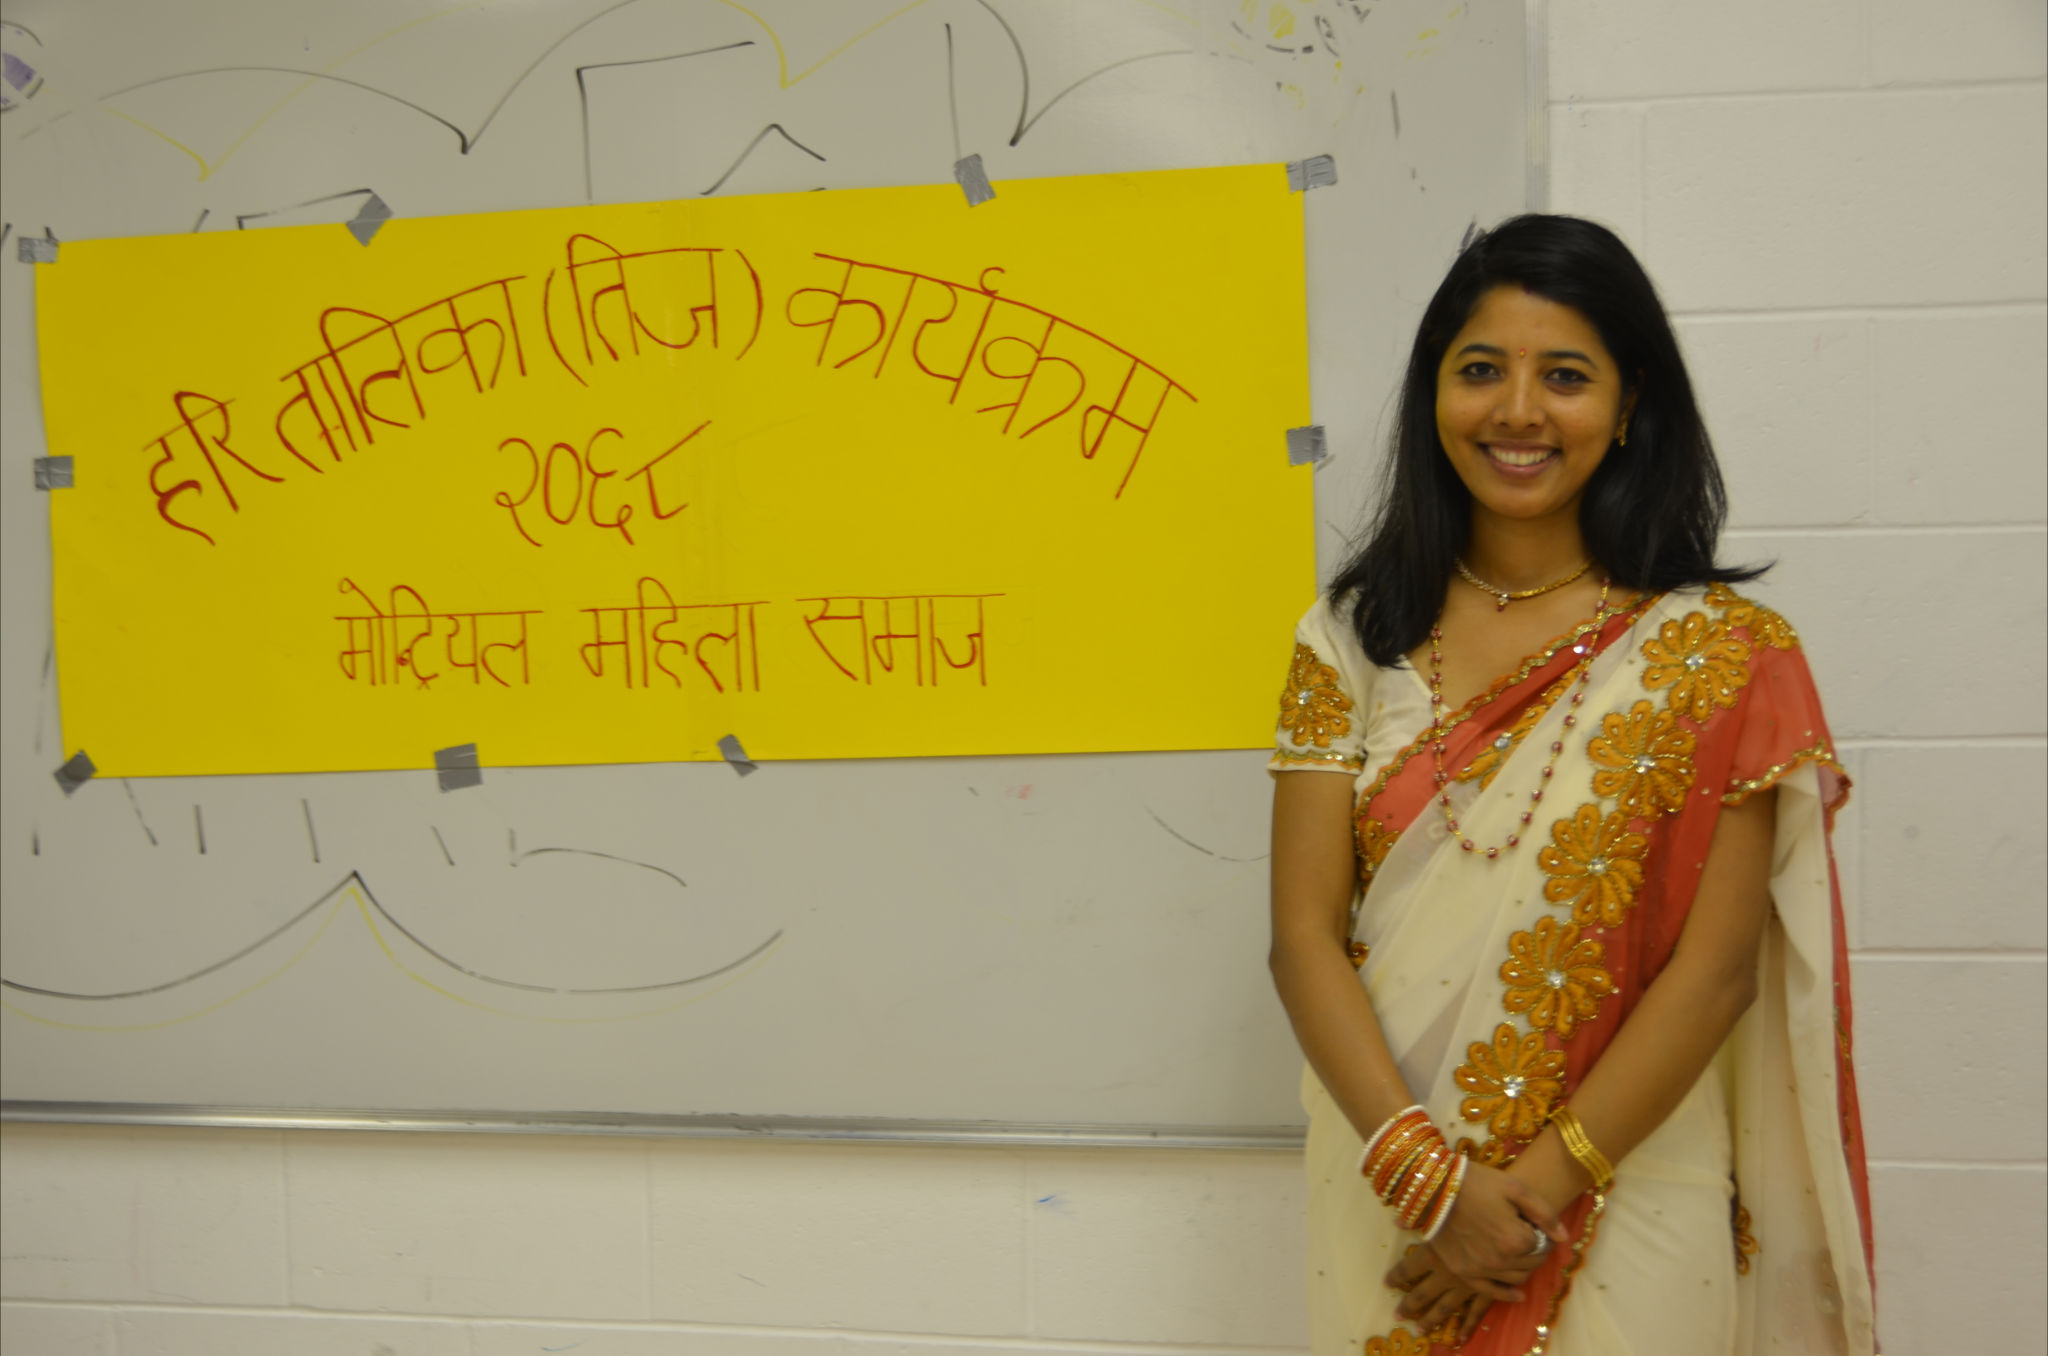 हरि तालिका (तिज) कार्यक्रम
२०६८
मोन्ट्रियल महिला समाज